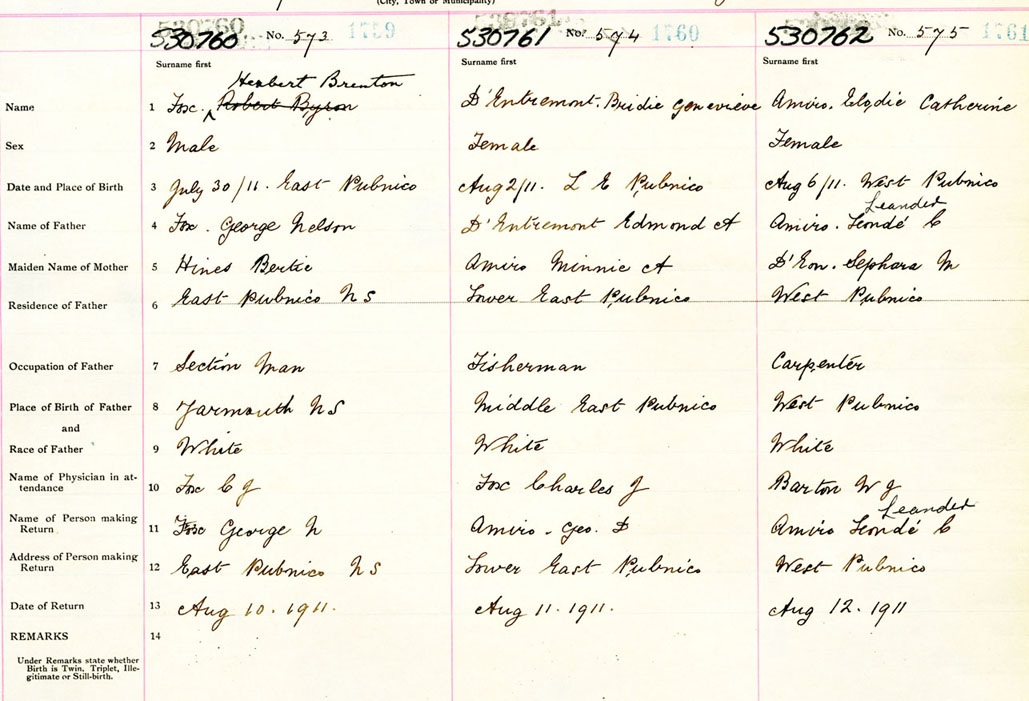 (City, Town or Municipality)
530760 No. 573 1759
530761 No. 574 1760
530762 No. 575 1761
Surname first Surname first Surname first
Herbert Brenton
Name 1 Fox. Robert Byron D'Entremont. Bridie Genevieve Amiro. Elodie Catherine
Sex 2 Male Female Female
Date and Place of Birth 3 July 30/11. East Pubnico Aug 2/11. L E Pubnico Aug 6/11. West Pubnico
Leander
Name of Father 4 Fox. George Nelson D'Entremont Edmond A Amiro. Leondé C
Maiden Name of Mother 5 Hines Bertie Amiro Minnie A D'Eon. Sephora M
Residence of Father 6 East Pubnico N S Lower East Pubnico West Pubnico
Occupation of Father 7 Section Man Fisherman Carpenter
Place of Birth of Father 8 Yarmouth N S Middle East Pubnico West Pubnico
and
Race of Father 9 White White White
Name of Physician in at-
tendance 10 Fox C J Fox Charles J Barton W J
Leander
Name of Person making
Return 11 Fox George N Amiro. Geo. D Amiro Leondé C
Address of Person making
Return 12 East Pubnico N S Lower East Pubnico West Pubnico
Date of Return 13 Aug 10. 1911. Aug 11. 1911. Aug 12. 1911
REMARKS 14
Under Remarks state whether
Birth is Twin. Triplet, Ille-
gitimate or Still-birth.